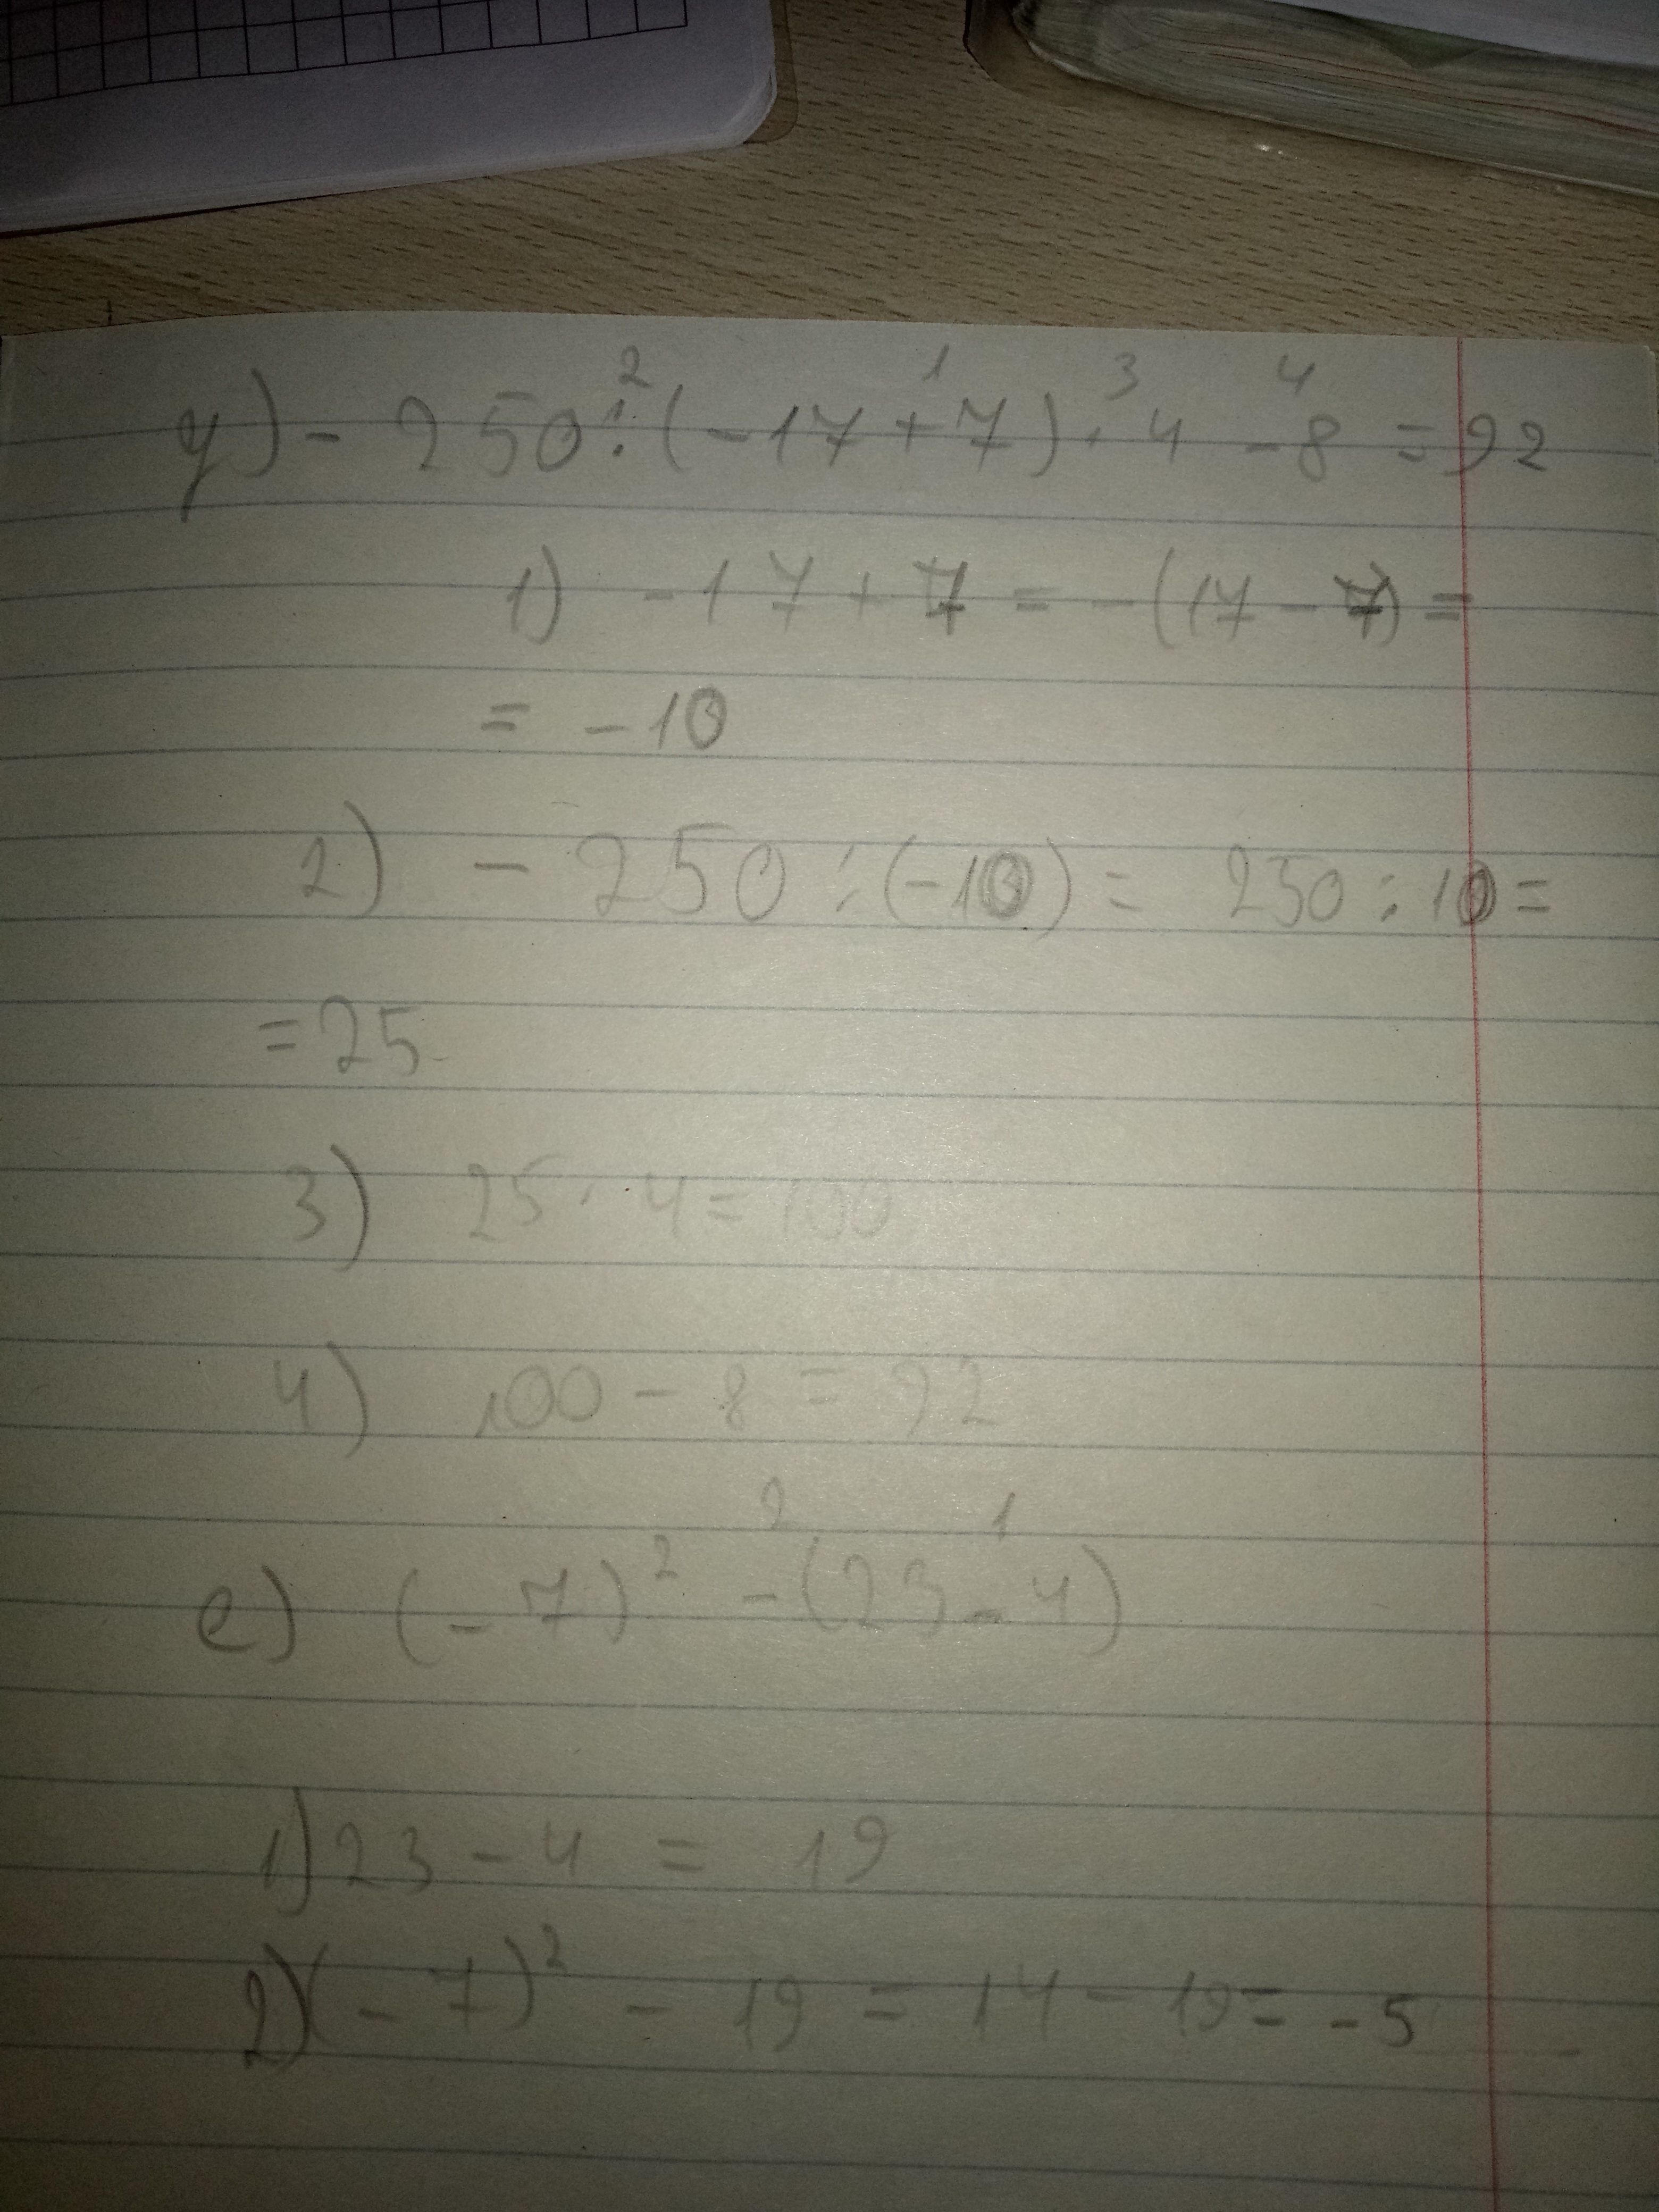 2 1 3 4
у) - 250 : (-17 + 7) · 4 - 8 = 92
1) -17 + 7 = -(17 - 7) =
= -10
2) - 250 : (-10) = 250 : 10 =
= 25
3) 25 · 4 = 100
4) 100 - 8 = 92
2 1
е) (-7)² - (23 - 4)
1) 23 - 4 = 19
2) (-7)² - 19 = 14 - 19 = -5